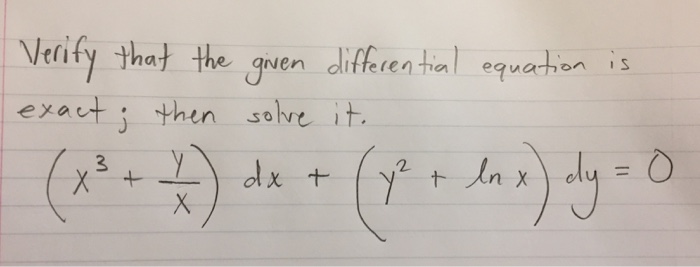 Verify that the given differential equation is
exact; then solve it.
(x³ + y/x) dx + (y² + ln x) dy = 0